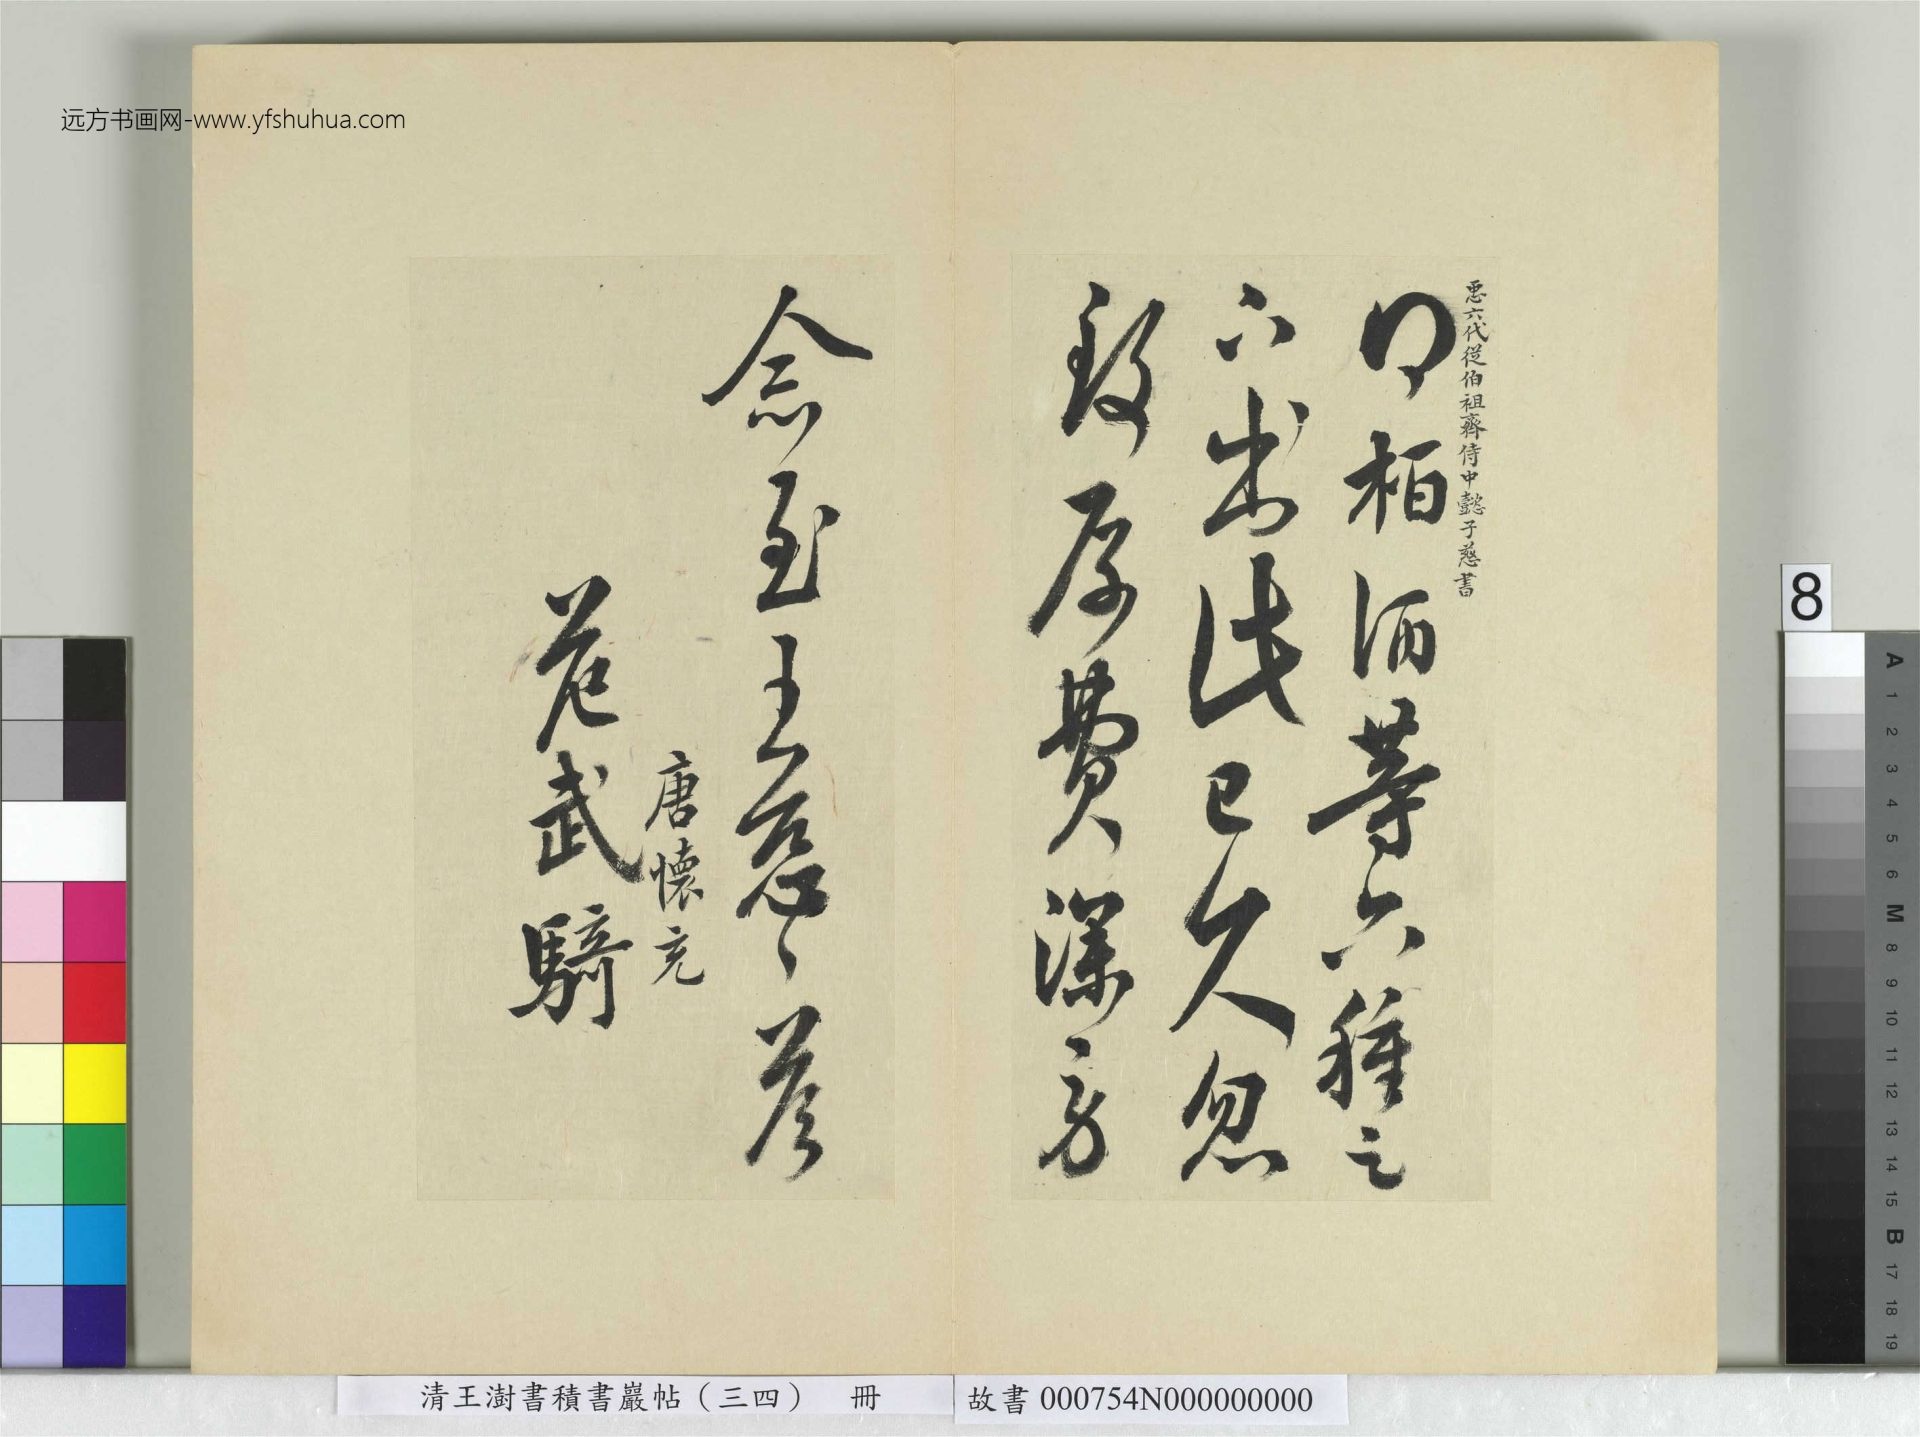 远方书画网-www.yfshuhua.com
𢘑六代從伯祖齊侍中懿子慈書
得柏酒等六種足
下出此已久忽
致厚費深勞
念至王慈〻答
唐懷充
范武騎
8
A
1
2
3
4
5
6
M
8
9
10
11
12
13
14
15
B
17
18
19
清王澍書積書巖帖（三四） 冊
故書 000754N000000000